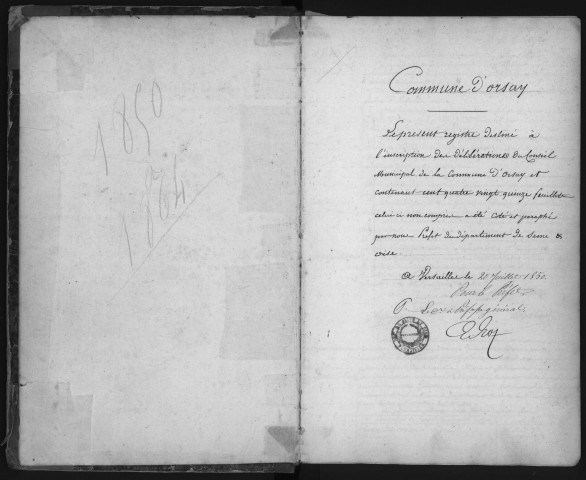 1850
1864
Commune d'orsay
Le present registre destiné à
l'inscription des déliberations du Conseil
Municipal de la Commune d'Orsay et
contenant cent quatre vingt quinze feuillets
celui ci non compris a été coté et paraphé
par nous Prefet du département de Seine &
oise.
A Versailles le 20 Juillet 1850.
Pour le Préfet
général